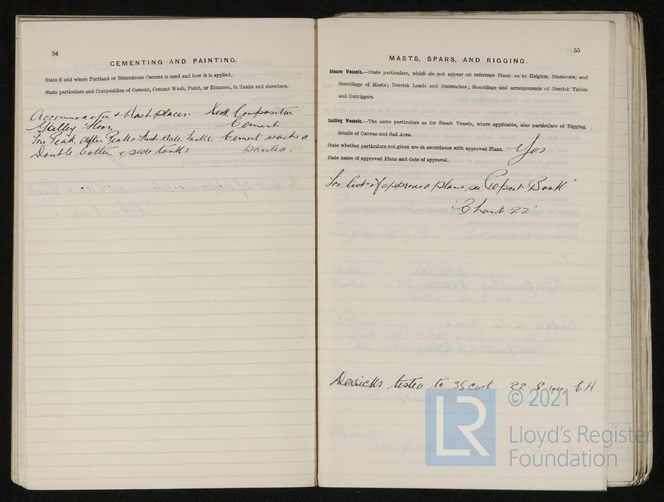 54
CEMENTING AND PAINTING.
State if and where Portland or Bituminous Cement is used and how it is applied.
State particulars and Composition of Cement, Cement Wash, Paint, or Bitumen, in Tanks and elsewhere.
Accommodation & Wash places. Deck Composition
Galley floor. Cement
Fore Peak, After Peak & Feed Water Tanks. Cement washed
Double bottom & side tanks painted.
55
MASTS, SPARS, AND RIGGING.
Steam Vessels.—State particulars, which do not appear on reference Plans as to Heights, Diameters, and
Scantlings of Masts; Derrick Loads and Outreaches; Scantlings and arrangements of Derrick Tables
and Outriggers.
Sailing Vessels.—The same particulars as for Steam Vessels, where applicable, also particulars of Rigging
details of Canvas and Sail Area.
State whether particulars not given are in accordance with approved Plans. Yes
State name of approved Plans and date of approval.
For list of approved plans, see Report Book
Derricks tested to 35 cwt 22. 8
LR
© 2021
Lloyd's Register
Foundation